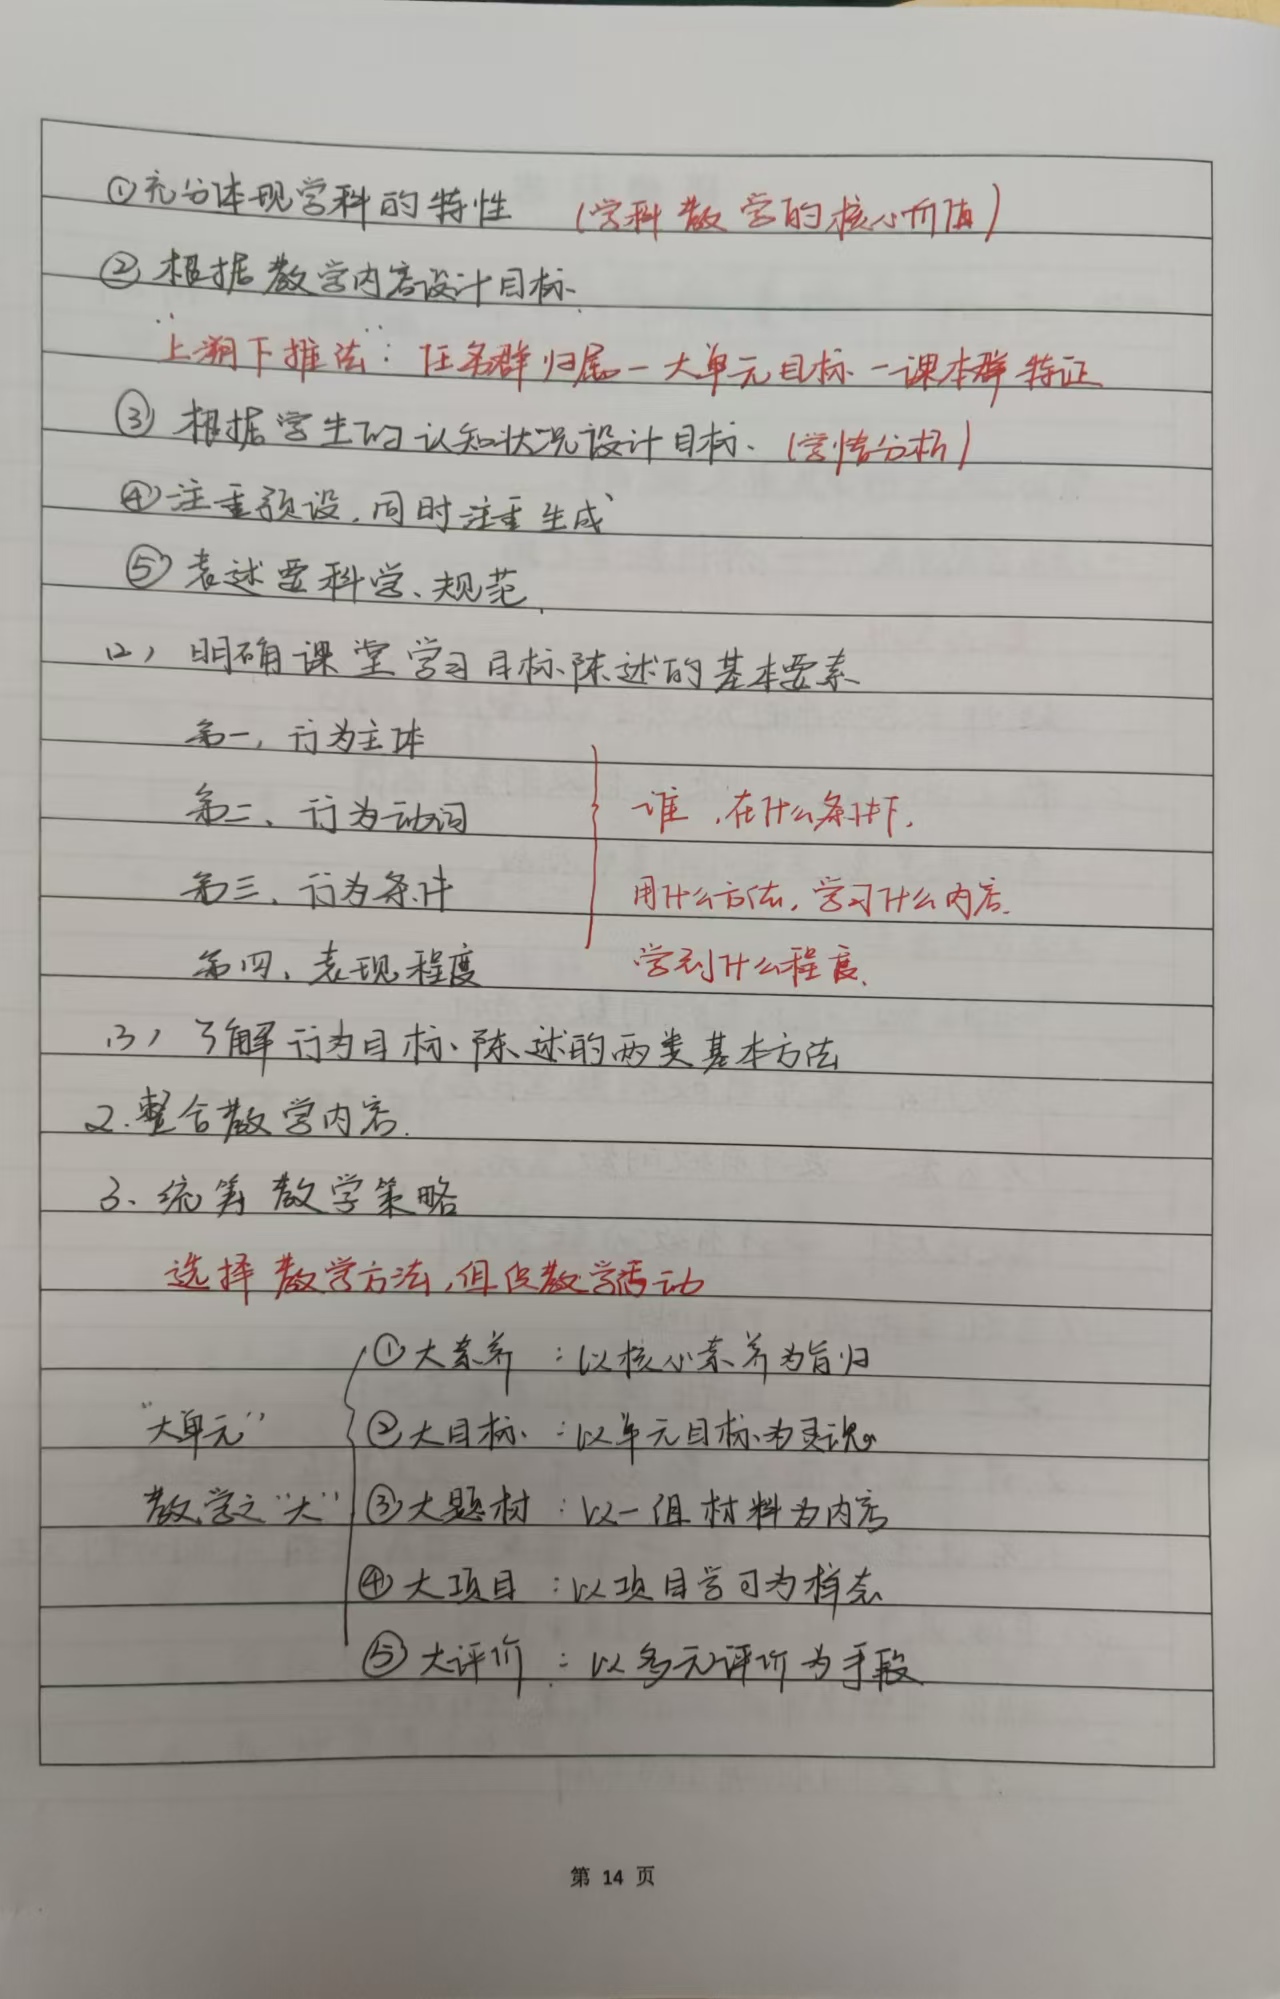 ①充分体现学科的特性 (学科教学的核心价值)
②根据教学内容设计目标.
"上溯下推法": 任务群归属—大单元目标—课本群特征
③根据学生的认知状况设计目标. (学情分析)
④注重预设,同时注重生成
⑤表述要科学、规范.
(2) 明确课堂学习目标陈述的基本要素
第一, 行为主体
第二、行为动词 谁,在什么条件下,
第三、行为条件 用什么方法,学习什么内容.
第四、表现程度 学到什么程度.
(3) 了解行为目标陈述的两类基本方法
2.整合教学内容.
3、统筹教学策略
选择教学方法,组织教学活动
①大素养:以核心素养为旨归
"大单元" ②大目标:以单元目标为灵魂
教学之"大" ③大题材:以一组材料为内容
④大项目:以项目学习为样态
⑤大评价:以多元评价为手段
第 14 页